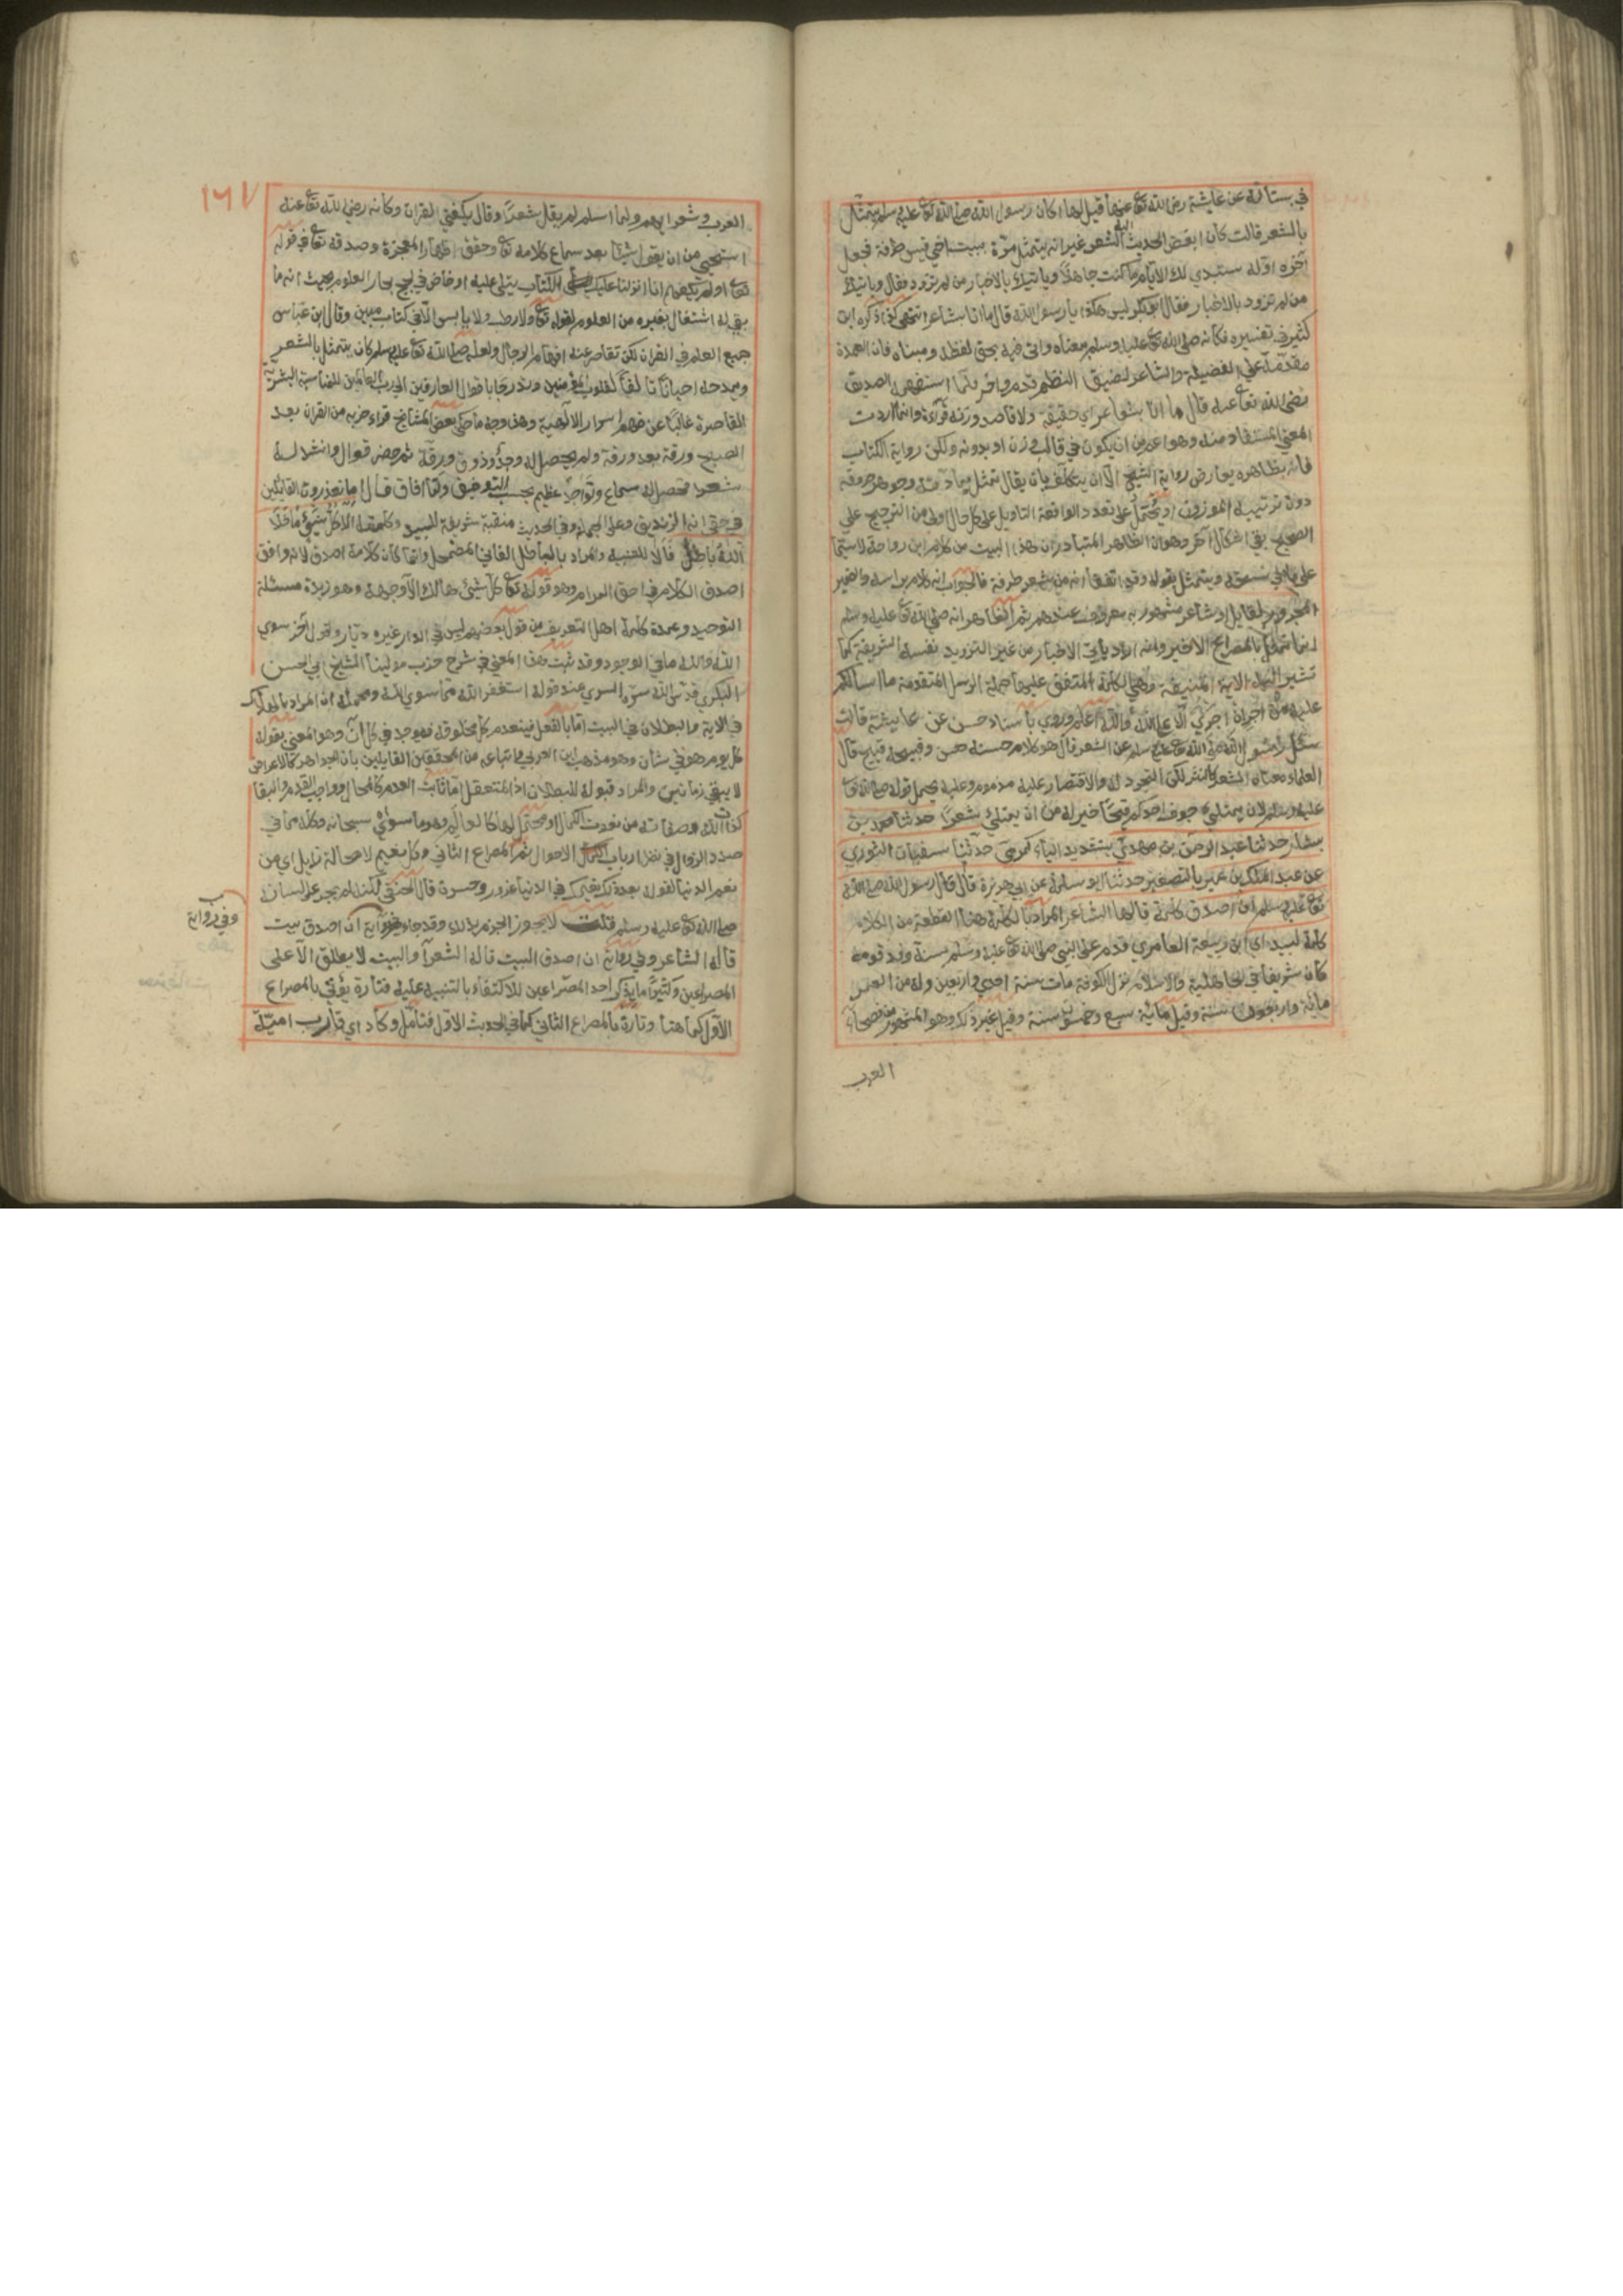 في بستانه عن عايشة رضي الله تعا عنها قيل لها اكان رسول الله صلى الله تعا عليه وسلم يتمثل
بالشعر قالت كان ابغض الحديث اليه الشعر غير انه يتمثل مرة ببيت اخي قيس طرفة فجعل
آخره اوله ستبدي لك الايام ما كنت جاهلا وياتيك بالاخبار من لم تزود فقال وياتيك
من لم تزود بالاخبار فقال ابو بكر ليس هكذا يا رسول الله قال ما انا بشاعر انتهى كذا ذكره ابن
كثير في تفسيره فكانه صلى الله تعا عليه وسلم معناه واتى فيه بحق لفظه ومبناه فان العمدة
مقدمة على الفضيلة والشاعر لضيق النظم قدم واخر فلما استفهمه الصديق
رضي الله تعا عنه قال ما انا بشاعر اي حقيقة ولا قاصد وزنه قراءة وانما اردت
المعنى المستفاد منه وهو اعم من ان يكون في قالب وزن او بدونه ولكن رواية الكتاب
فانه بظاهره يعارض رواية الشيخ الا ان يتكلف بان يقال تمثل بمادته وجوهر حروفه
دون ترتيبه الموزون او يحتمل على تعدد الواقعة التاويل على كل حال اولى من الترجيح على
الصحيح بقي اشكال آخر وهو ان الظاهر المتبادر ان هذا البيت من كلام ابن رواحة لا سيما
على ما في نسخة ويتمثل بقوله وقد اتفقوا انه من شعر طرفة فالجواب انه كلام براسه والضمير
المجرور لقايل او شاعر مشهور به معروف عندهم ثم الظاهر انه صلى الله تعا عليه وسلم
انما تمثل بالمصراع الاخير وانه اراد ياتي الاخبار من غير التزويد نفسه الشريفة كما
تشير اليه الاية المنيفة وهي الكلمة المتفق عليها جملة الرسل المتقدمة ما اسالكم
عليه من اجر ان اجري الا على الله والله اعلم وروي باسناد حسن عن عايشة قالت
سئل رسول الله صلى الله تعا عليه وسلم عن الشعر قال هو كلام حسنه حسن وقبيحه قبيح قال
العلماء معناه الشعر كالنثر لكن التجرد له والاقتصار عليه مذموم وعليه يحمل قوله صلى الله تعا
عليه وسلم لان يمتلئ جوف احدكم قيحا خير له من ان يمتلئ شعرا حدثنا محمد بن
بشار حدثنا عبد الرحمن بن مهدي بتشديد الياء كمرمي حدثنا سفيان الثوري
عن عبد الملك بن عمير بالتصغير حدثنا ابو سلمة عن ابي هريرة قال قال رسول الله صلى الله
تعا عليه وسلم ان اصدق كلمة قالها الشاعر المراد بالكلمة هنا القطعة من الكلام
كلمة لبيد اي ابن ربيعة العامري قدم على النبي صلى الله تعا عليه وسلم سنة وفد قومه
كان شريفا في الجاهلية والاسلام نزل الكوفة مات سنة احدى واربعين وله من العمر
مائة واربعون سنة وقيل مائة سبع وخمسون سنة وقيل غير ذلك وهو المشهور من فصحاء
العرب
١٦٧
العرب وشعرايهم ولما اسلم لم يقل شعرا وقال يكفيني القران وكانه رضي الله تعا عنه
استحيى من ان يقول شيئا بعد سماع كلامه تعا وحقق اظهار المعجزة وصدقه تعا في قوله
تعا اولم يكفهم انا انزلنا عليك الكتاب يتلى عليهم او خاض في لجج بحار العلوم بحيث انه ما
بقي له اشتغال بغيره من العلوم لقوله تعا ولا رطب ولا يابس الا في كتاب مبين وقال ابن عباس
جميع العلم في القران لكن تقاصر عنه افهام الرجال ولعله صلى الله تعا عليه وسلم كان يتمثل بالشعر
ويمدحه احيانا تالفا لقلوب المؤمنين وتدرجا باقوال العارفين الى للمناسبة البشرية
القاصرة غالبا عن فهم اسرار الالهية وهذا وجه ما حكى بعض المشايخ قراء حزبه من القران بعد
الصبح ورقة بعد ورقة ولم يحصل له وجد وذوق ورقة ثم حضر قوال وانشد له
شعرا فحصل له سماع وتواجد عظيم بحسب التوفيق ولما افاق قال اما تعذرون القائلين
في حقي انه الزنديق وعلى الجملة وفي الحديث منقبة شريفة للبيد وكلمته الا كل شيء ما خلا
الله باطل فالا للتنبيه والمراد بالباطل الفاني المضمحل وانما كان كلامه اصدق لانه وافق
اصدق الكلام في احق المرام وهو قوله تعا كل شيئ هالك الا وجهه وهو زبدة مسئلة
التوحيد وعمدة كلمة اهل التعريف من قول بعضهم ليس في الدار غيره ديار وقول آخر سوى
الله والله ما في الوجود وقد ثبت هذا المعنى في شرح حزب مولينا الشيخ ابي الحسن
البكري قدس الله سره السري عند قوله استغفر الله مما سوى الله ومجمله ان المراد بالهلاك
في الاية والبطلان في البيت اما بالفعل فينعدم كل مخلوق فيوجد في كل آن وهو المعنى بقوله
كل يوم هو في شان وهو مذهب ابن العربي واتباعه من المحققين القايلين بان الجواهر كالاعراض
لا يبقى زمانين والمراد قبوله للبطلان اذ المتعقل اما ثابت العدم كالمحال وواجب القدم والبقا
كذات الله وصفاته من نعوت الكمال ومحتمل لهما كالعالم وهو ما سواه سبحانه وكله مما في
صدد الزوال في نظر ارباب الاحوال ثم المصراع الثاني وكل نعيم لا محالة زايل اي من
نعيم الدنيا لقوله بعد ذلك نعيمك في الدنيا غرور وحسرة قال الحنفي لكنه لم يجر على لسان
صلى الله تعا عليه وسلم قلت لا يجوز الجزم بذلك وقد جاء في رواية ان اصدق بيت
وفي رواية
قاله الشاعر وفي رواية ان اصدق البيت قاله الشعراء والبيت لا يطلق الا على
المصراعين وكثيرا ما يذكر احد المصراعين للاكتفاء بالتنبيه عليه فتارة يؤتى بالمصراع
الاول كما هنا وتارة بالمصراع الثاني كما في الحديث الاول فتامل وكاد اي قارب امية